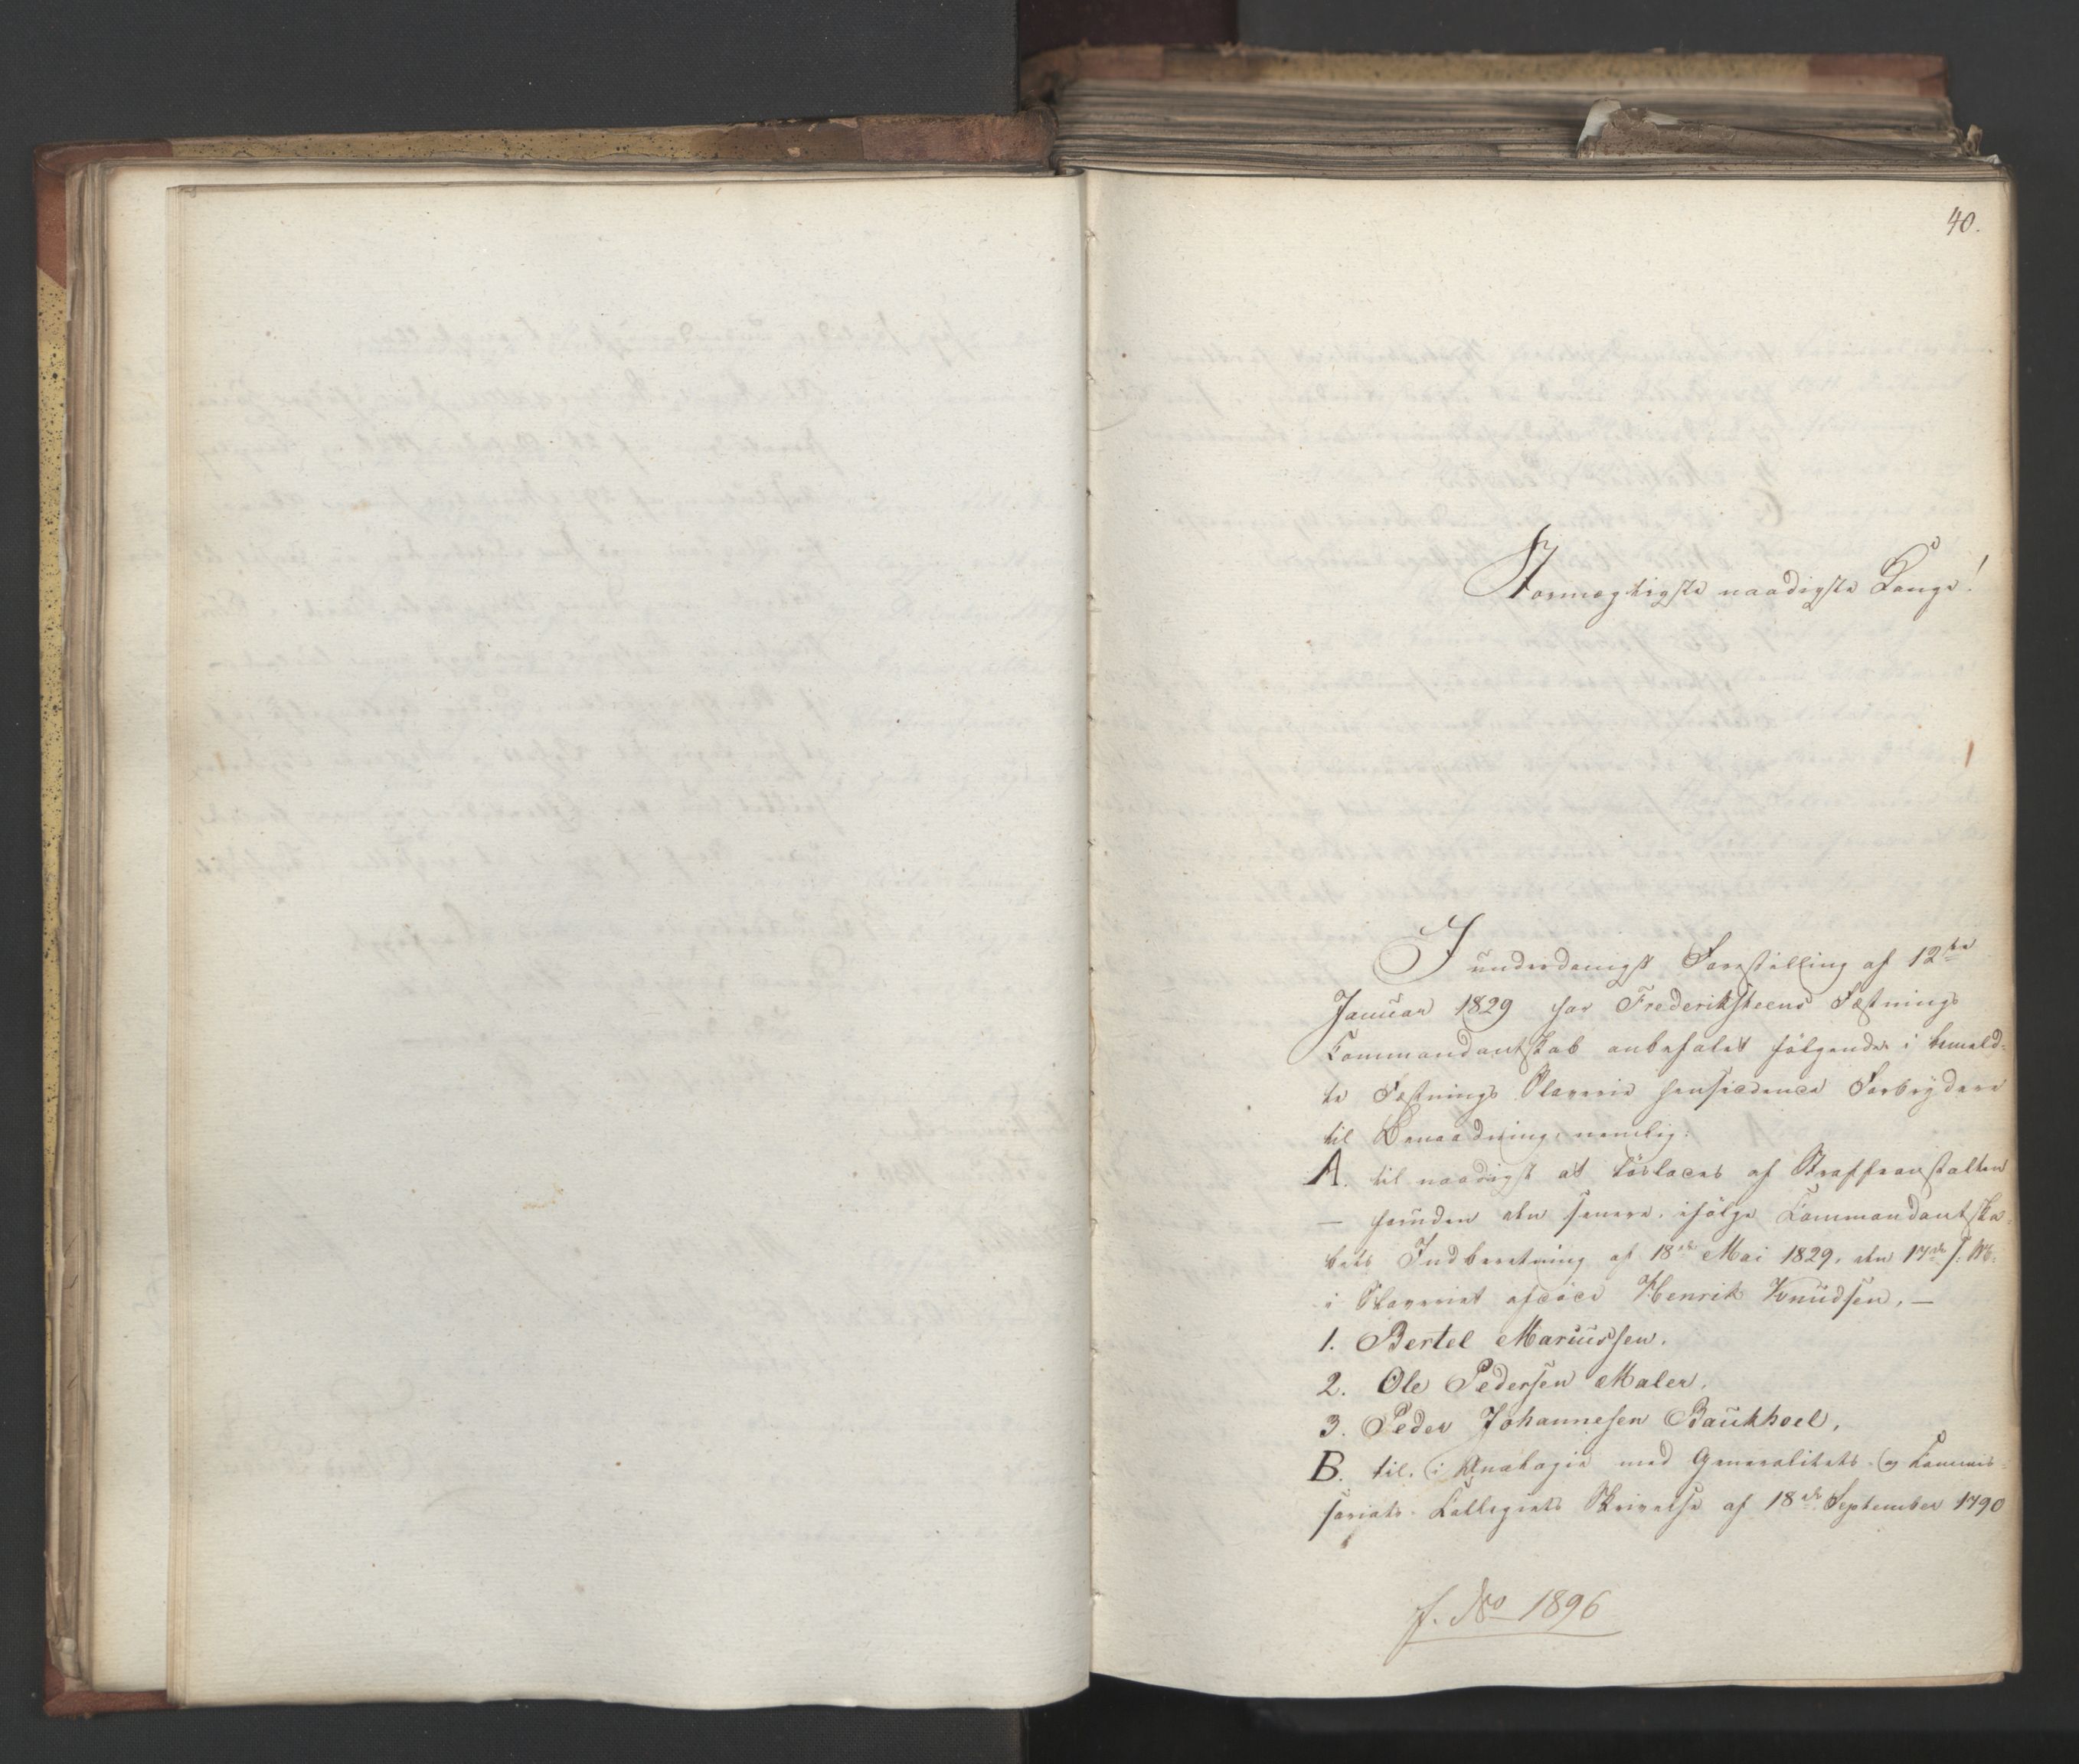 40.
Stormægtigste naadigste Konge!
I underdanigst Forestilling af 12te
Januar 1829 har Frederiksteens Fæstnings
Kommandantskab anbefalet følgende i bemeld-
te Fæstnings Slaverie hensiddende Forbrydere
til Benaadning, nemlig:
A. til naadigst at løslades af Straffeanstalten
— foruden den senere, ifølge Kommandantska-
bets Indberetning af 18de Mai 1829, den 17de s: M:
i Slaveriet afdøde Henrik Knudsen, —
1. Bertel Mariussen.
2. Ole Pedersen Maler.
3. Peder Johannesen Baukhoel.
B. til, i Analogie med Generalitets- og Kommis-
sariats-Collegiets Skrivelse af 18de September 1790
J. No 1896